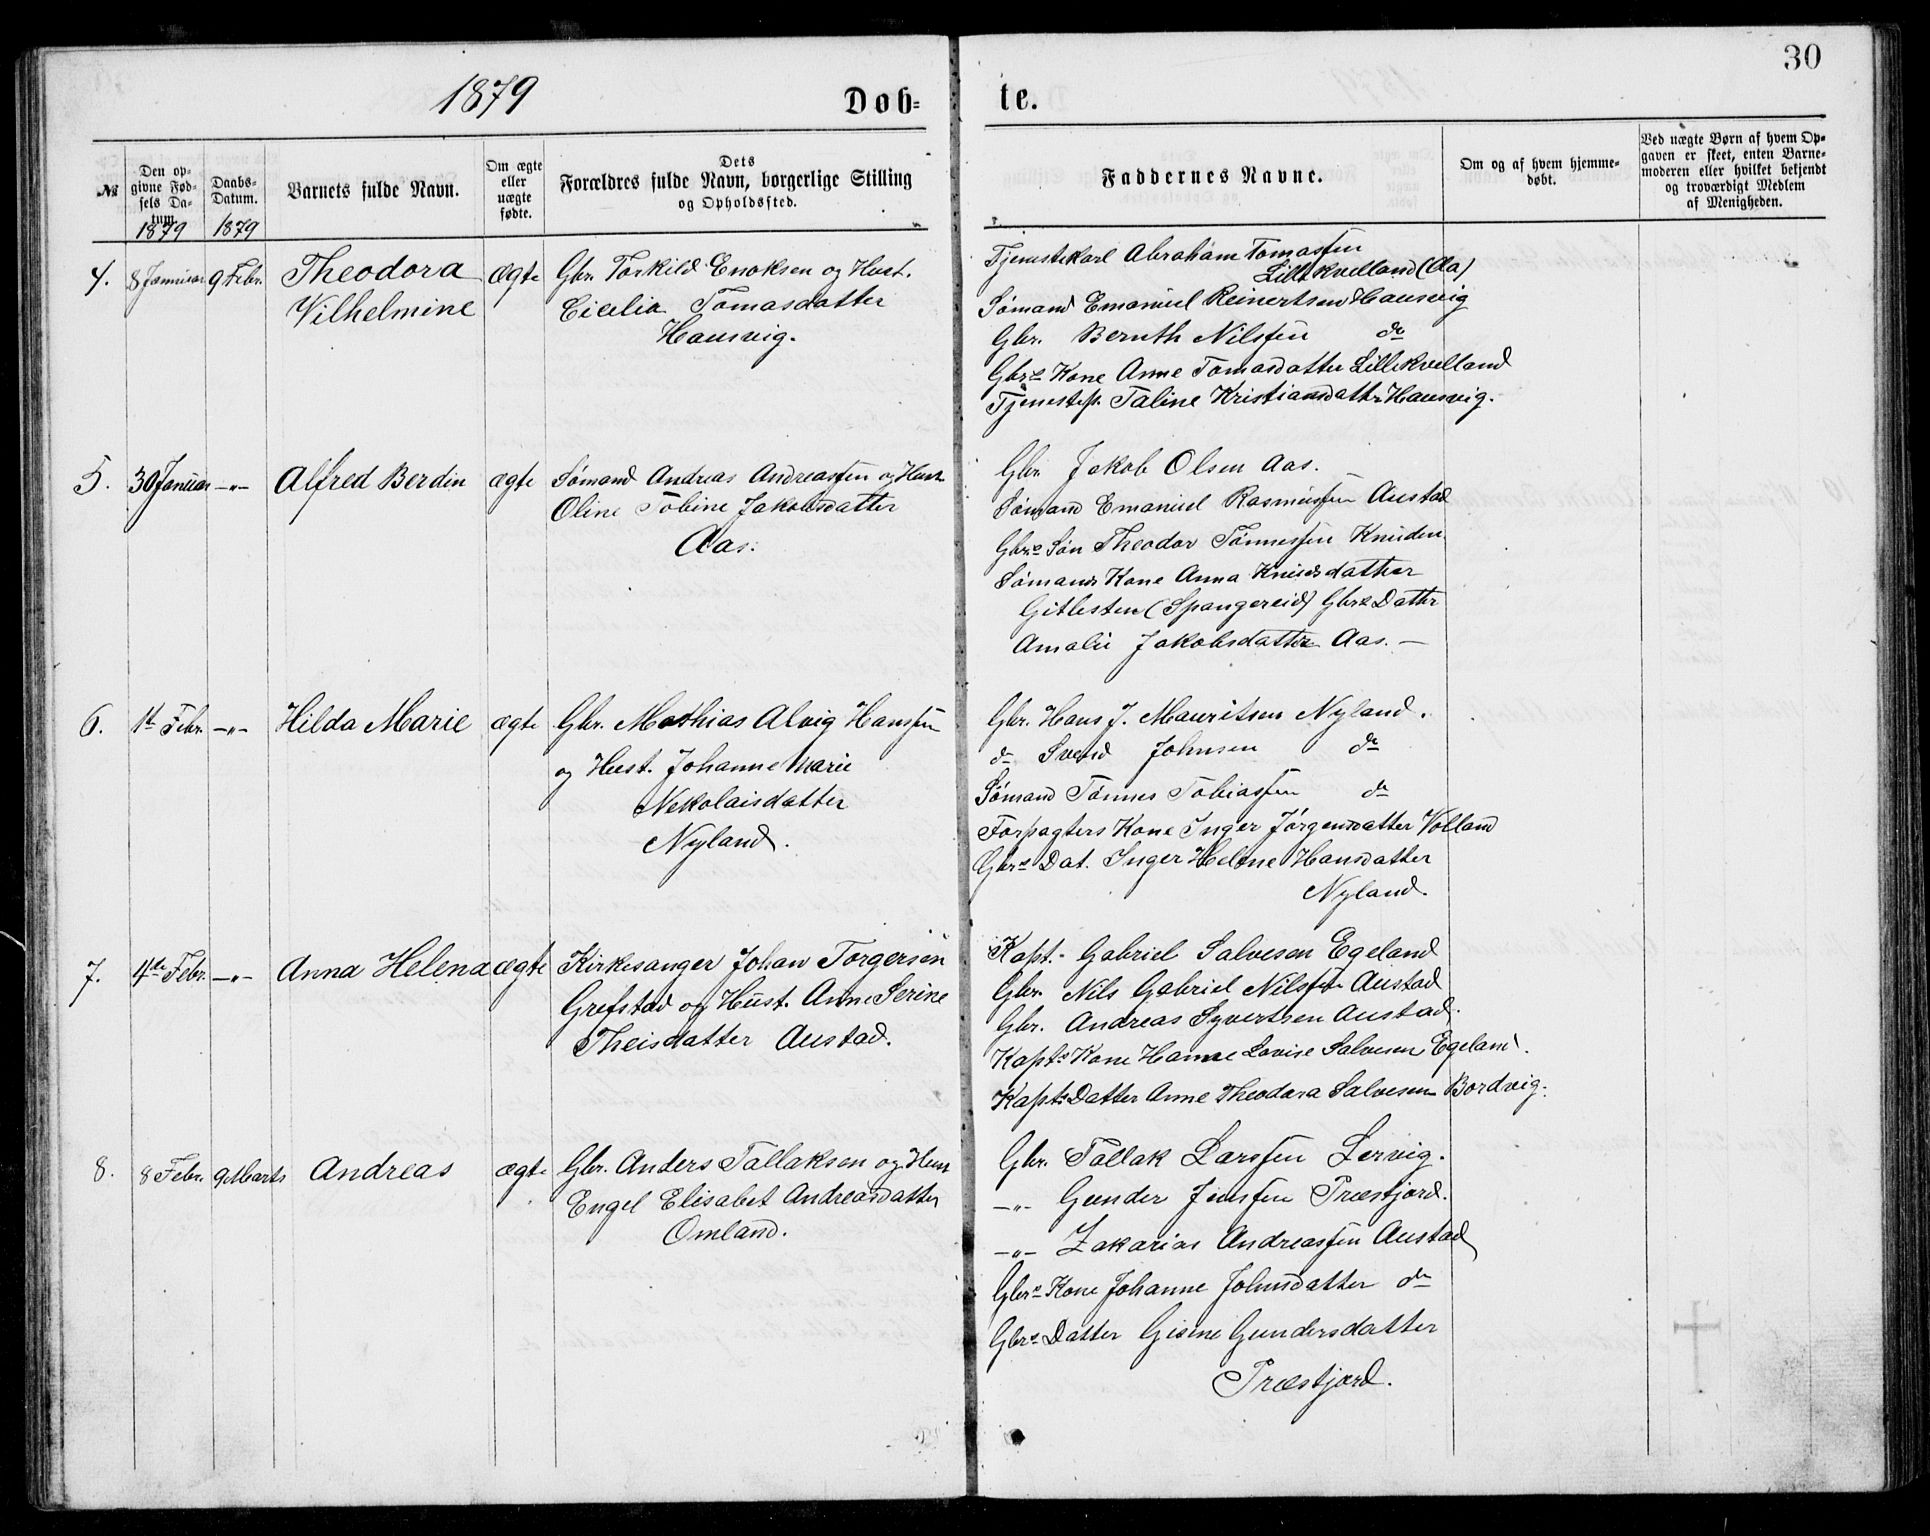 30
1879 Døb- te.
№
Den op-
givne Fød-
sels Da-
tum.
1879
Daabs-
Datum.
1879
Barnets fulde Navn.
Om ægte
eller
uægte
fødte.
Dets
Forældres fulde Navn, borgerlige Stilling
og Opholdssted.
Faddernes Navne.
Om og af hvem hjemme-
døbt.
Ved uægte Børn af hvem Op-
gaven er skeet, enten Barne-
moderen eller hvilket bekjendt
og troværdigt Medlem
af Menigheden.
4. 8 Januar 9 Febr. Theodora ægte Gbr. Torkild Enoksen og Hust.
Wilhelmine Cicelia Tomasdatter
Hausvig.
Tjenestekarl Abraham Tomassen
Lillekvelland (Aa)
Sømand Emanuel Reinertsen Hausvig
Gbr. Bernth Nilssen do
Gbrs Kone Anne Tomasdatter Lillekvelland
Tjenestep. Taline Kristiansdatter Hausvig.
5. 30 Januar -"- Alfred Berdin ægte Sømand Andreas Andreassen og Hust.
Oline Tobine Jakobsdatter
Aas.
Gbr. Jakob Olsen Aas.
Sømand Emanuel Rasmussen Austad
Gbrs Søn Theodor Tønnessen Knuden
Sømands Kone Anna Knudsdatter
Gitlesten (Spangereid) Gbrs Datter
Amalie Jakobsdatter Aas. —
6. 1st Febr. -"- Hilda Marie ægte Gbr. Mathias Alvig Hanssen
og Hust. Johanne Marie
Nekolaisdatter
Nyland.
Gbr. Hans J. Mauritsen Nyland.
do Svend Johnsen do
Sømand Tønnes Tobiassen do
Forpagters Kone Inger Jørgensdatter Volland
Gbrs Dat. Inger Helene Hansdatter
Nyland.
7. 4de Febr. -"- Anna Helena ægte Kirkesanger Johan Torgersen
Grefstad og Hust. Anne Serine
Theisdatter Austad.
Kapt. Gabriel Salvesen Egeland
Gbr. Nils Gabriel Nilssen Austad
Gbr. Andreas Syvertsen Austad.
Kapts Kone Hanne Lovise Salvesen Egeland.
Kapts Datter Anne Theodora Salvesen Bordvig.
8. 8 Febr. 9 Marts Andreas ægte Gbr. Anders Tallaksen og Hust
Engel Elisabet Andreasdatter
Omland.
Gbr. Tallak Larssen Lervig.
-"- Gunder Jenssen Præstjord.
-"- Zakarias Andreassen Austad
Gbrs Kone Johanne Johnsdatter do
Gbrs Datter Gisine Gundersdatter
Præstjord.